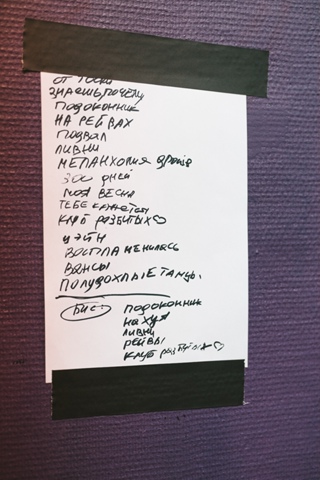 ОТ ТОСКИ
ЗНАЕШЬ ПОЧЕМУ
ПОДОКОННИК
НА РЕЙВАХ
ПОДВАЛ
ЛИВНИ
МЕЛАНХОЛИЯ
300 ДНЕЙ
МОЯ ВЕСНА
ТЕБЕ КАЖЕТСЯ
КЛУБ РАЗБИТЫХ♡
ЦЭЙН
ВОСПЛАМЕНИЛАСЬ
ВАНСЫ
ПОЛУДОХЛЫЕ ТАНЦЫ.
БИС: ПОДОКОННИК
НАХУЯ
ЛИВНИ
РЕЙВЫ
КЛУБ РАЗБИТЫХ♡